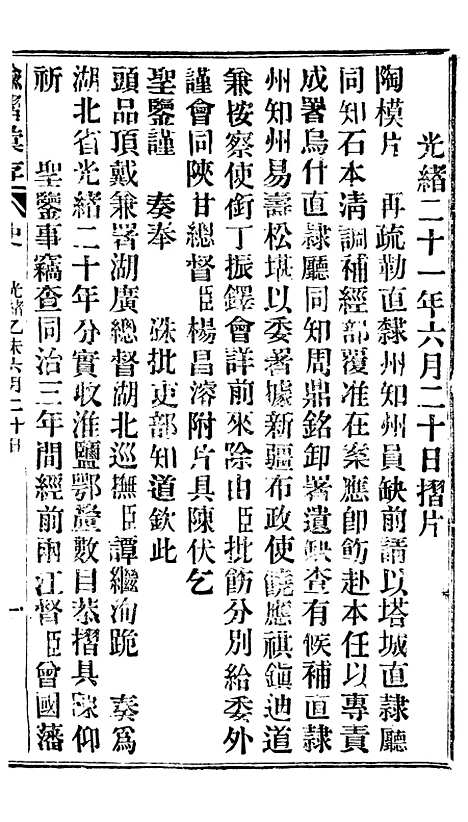 光緒二十一年六月二十日摺片
陶模片　再疏勒直隸州知州員缺前請以塔城直隸廳
同知石本清調補經部覆准在案應卽飭赴本任以專責
成署烏什直隸廳同知周鼎銘卸署遺缺查有候補直隸
州知州易壽松堪以委署據新疆布政使饒應祺鎮迪道
兼按察使銜丁振鐸會詳前來除由臣批飭分別給委外
謹會同陝甘總督臣楊昌濬附片具陳伏乞
聖鑒謹　奏奉　硃批吏部知道欽此
頭品頂戴兼署湖廣總督湖北巡撫臣譚繼洵跪　奏爲
湖北省光緒二十年分實收淮鹽鄂釐數目恭摺具陳仰
祈　聖鑒事竊查同治三年間經前兩江督臣曾國藩
諭摺彙存　史　光緒乙未六月二十日　一